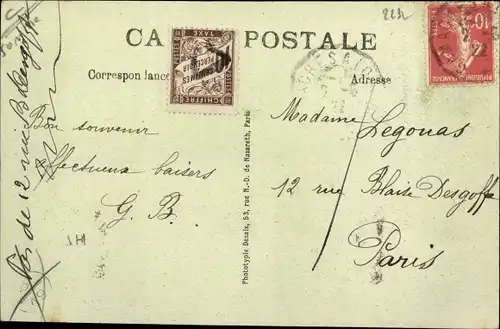 2232
CARTE POSTALE
Correspondance
Adresse
CHIFFRE
TAXE
CENTIMES
PERCEVOIR
10
Bon souvenir
affectueux baisers
G. B.
Madame Legouas
12 rue Blaise Desgoffe
Paris
de 12 rue B. Desgoffe
Phototypie Desaix, 53, rue N.-D. de Nazareth, Paris